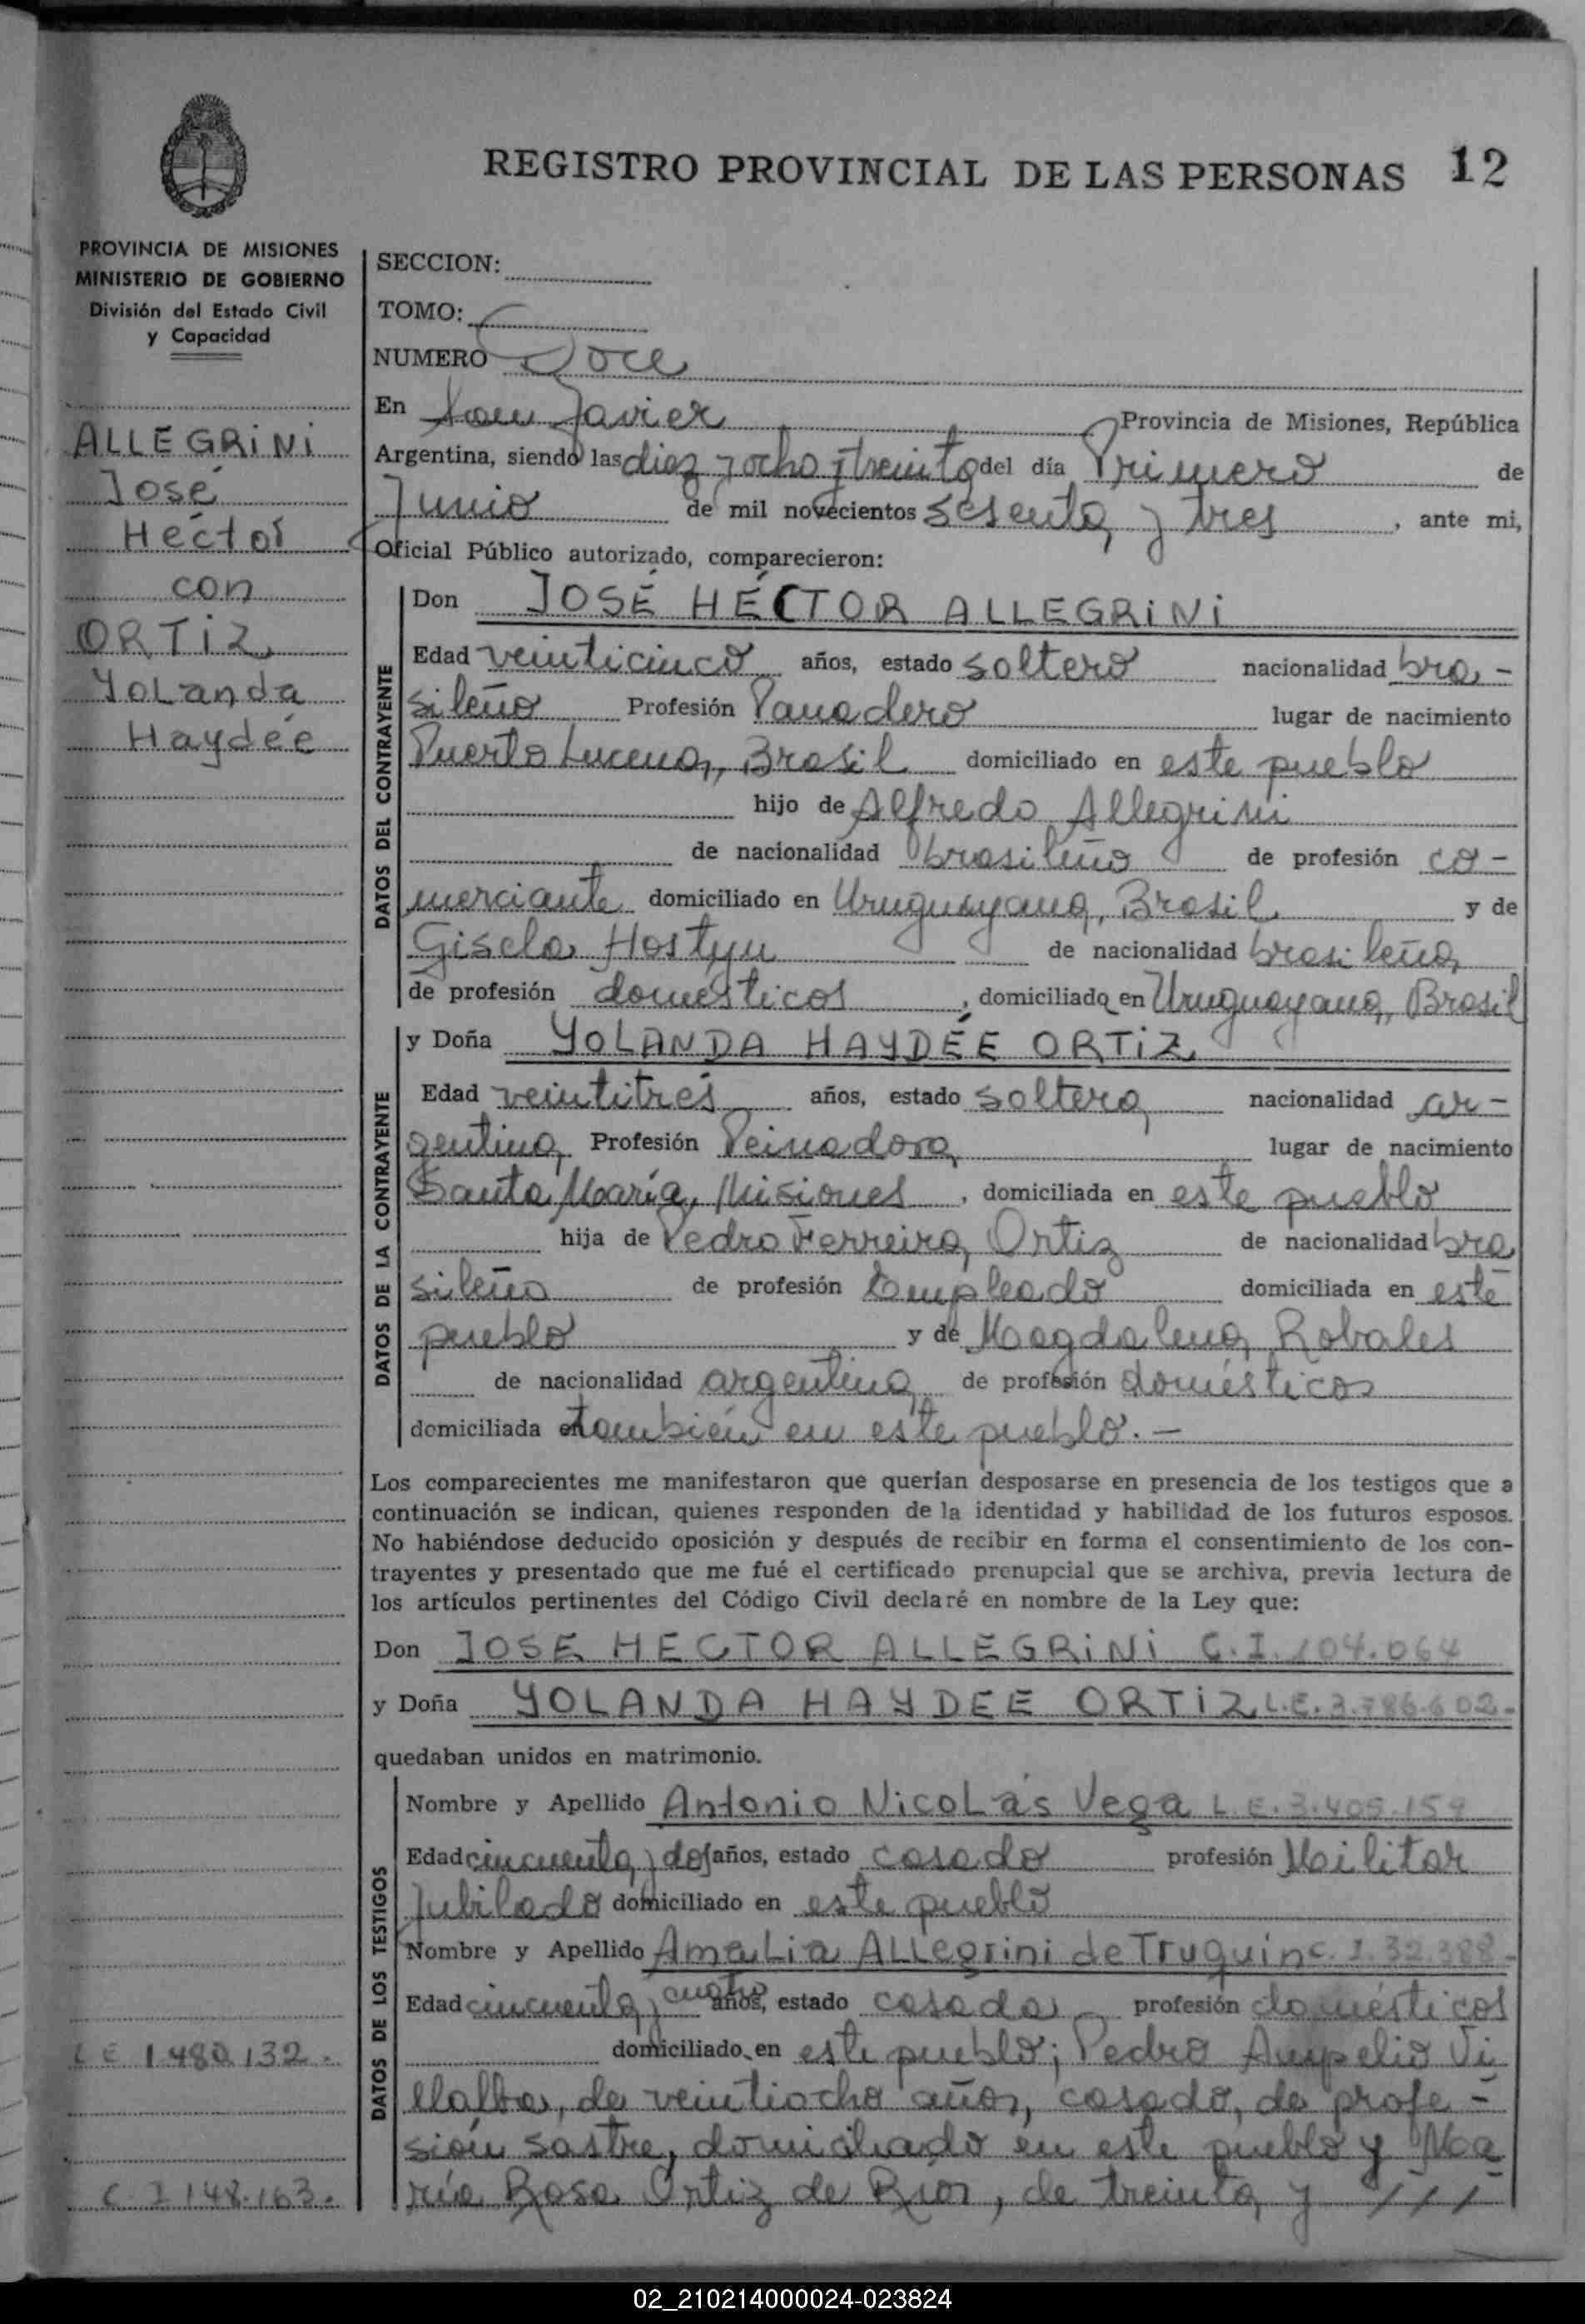 REGISTRO PROVINCIAL DE LAS PERSONAS 12
PROVINCIA DE MISIONES
MINISTERIO DE GOBIERNO
División del Estado Civil
y Capacidad
ALLEGRINI
José
Héctor
con
ORTIZ
Yolanda
Haydée
LE 1.480.132.
C I 148.163.
SECCION:
TOMO:
NUMERO Doce
En San Javier Provincia de Misiones, República
Argentina, siendo las diez y ocho y treinta del día Primero de
Junio de mil novecientos sesenta y tres, ante mi,
Oficial Público autorizado, comparecieron:
DATOS DEL CONTRAYENTE
Don JOSÉ HÉCTOR ALLEGRINI
Edad veinticinco años, estado soltero nacionalidad bra-
sileño Profesión Panadero lugar de nacimiento
Puerto Lucena, Brasil domiciliado en este pueblo
hijo de Alfredo Allegrini
de nacionalidad brasileño de profesión co-
merciante domiciliado en Uruguayana, Brasil y de
Gisela Hostyn de nacionalidad brasileña
de profesión domésticos, domiciliada en Uruguayana, Brasil
DATOS DE LA CONTRAYENTE
y Doña YOLANDA HAYDÉE ORTIZ
Edad veintitrés años, estado soltera nacionalidad ar-
gentina Profesión Peinadora lugar de nacimiento
Santa María, Misiones, domiciliada en este pueblo
hija de Pedro Ferreira Ortiz de nacionalidad bra
sileño de profesión Empleado domiciliada en este
pueblo y de Magdalena Robales
de nacionalidad argentina de profesión domésticos
domiciliada en también en este pueblo.-
Los comparecientes me manifestaron que querían desposarse en presencia de los testigos que a
continuación se indican, quienes responden de la identidad y habilidad de los futuros esposos.
No habiéndose deducido oposición y después de recibir en forma el consentimiento de los con-
trayentes y presentado que me fué el certificado prenupcial que se archiva, previa lectura de
los artículos pertinentes del Código Civil declaré en nombre de la Ley que:
Don JOSE HECTOR ALLEGRINI C.I. 104.064
y Doña YOLANDA HAYDEE ORTIZ L.C. 3.786.602-
quedaban unidos en matrimonio.
DATOS DE LOS TESTIGOS
Nombre y Apellido Antonio Nicolás Vega L.E. 3.405.159
Edad cincuenta y dos años, estado casado profesión Militar
Jubilado domiciliado en este pueblo
Nombre y Apellido Amalia Allegrini de Truquin C.I. 32.388-
Edad cincuenta y cuatro años, estado casada profesión domésticos
domiciliado en este pueblo; Pedro Ampelio Vi
llalba, de veintiocho años, casado, de profe-
sión sastre, domiciliado en este pueblo y Ma
ría Rosa Ortiz de Ríos, de treinta y ///
02_210214000024-023824